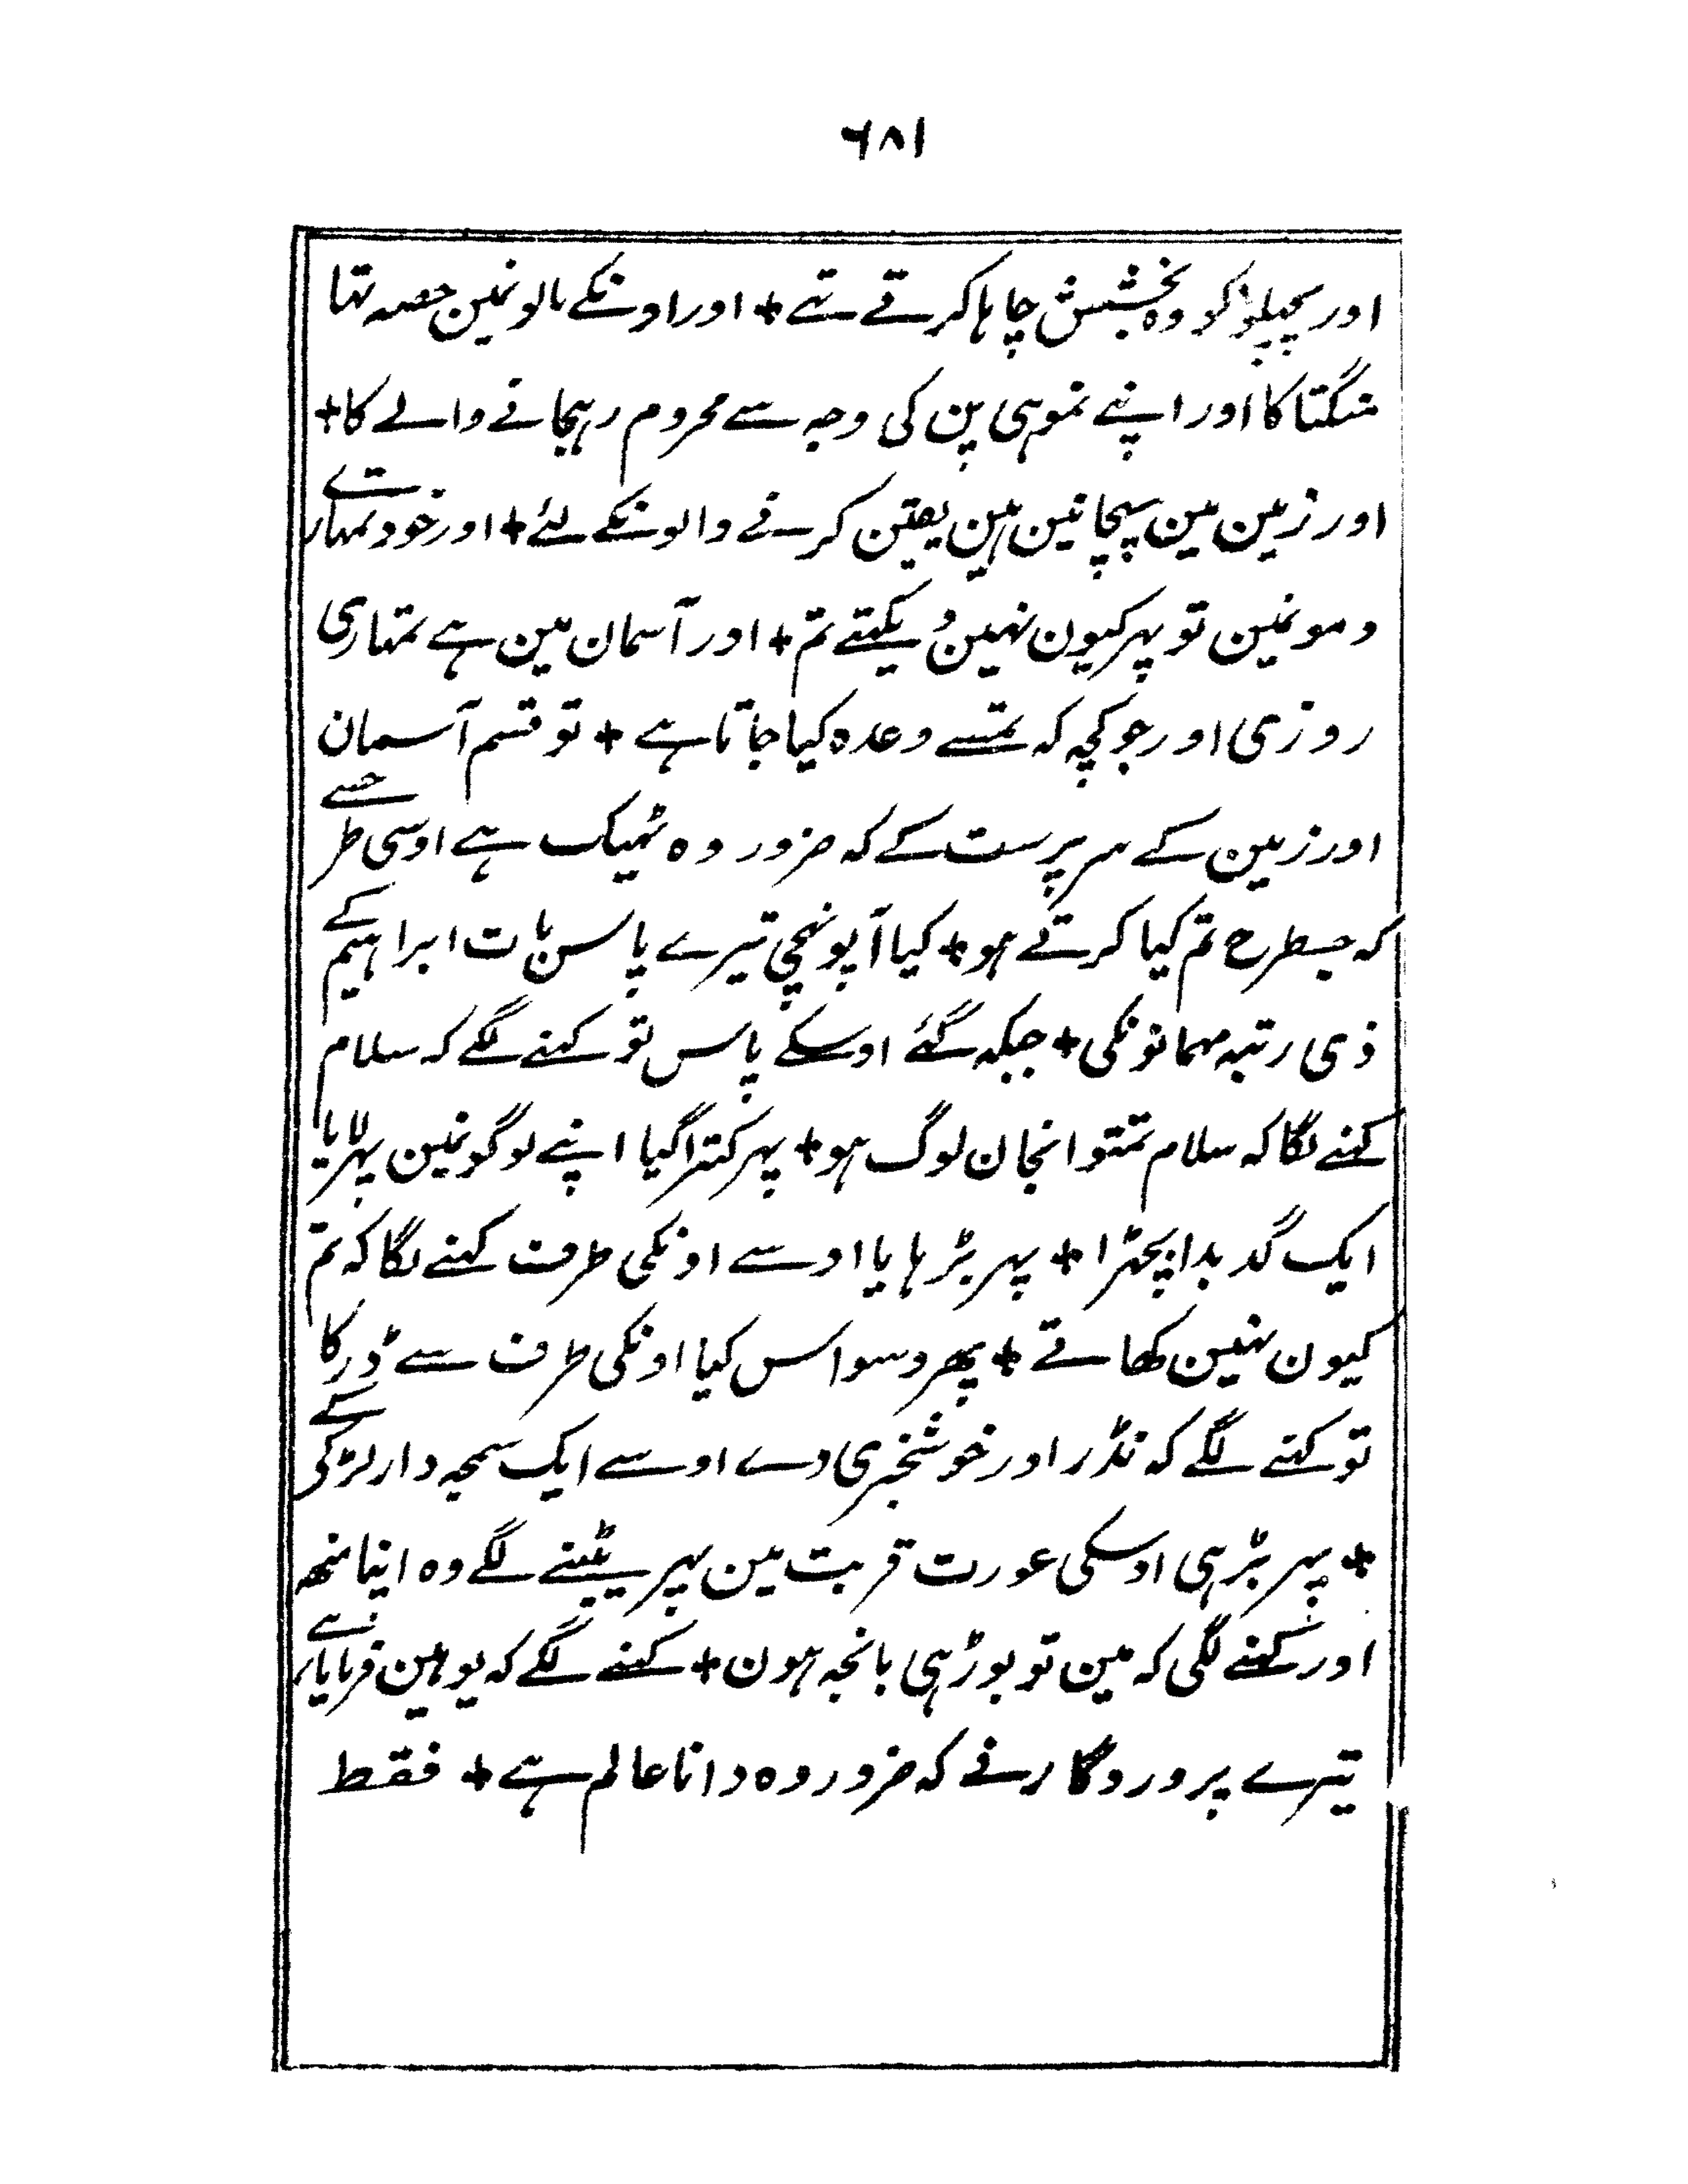 ۶۸۱
اور پچھلو کو وہ بخشش چاہا کرتے تہے + اور اونکے مالونمین حصہ تہا
منگتا کا اور اپنے نموہی پن کی وجہ سے محروم رہجانے والے کا +
اور زمین مین پہچانین ہین یقین کرنے والونکے لئے + اور خود تمہارے
دمونمین تو پہر کیون نہین دیکہتے تم + اور آسمان مین ہے تمہاری
روزی اور جو کچہ کہ تمسے وعدہ کیا جاتا ہے + تو قسم آسمان
اور زمین کے سرپرست کے کہ ضرور وہ ٹہیک ہے اوسی طرحسے
کہ جسطرح تم کیا کرتے ہو + کیا آپونہچی تیرے پاس بات ابراہیم کے
ذی رتبہ مہمانونکی + جبکہ گئے اوسکے پاس تو کہنے لگے کہ سلام
کہنے لگا کہ سلام تمتو انجان لوگ ہو + پہر کتراگیا اپنے لوگونمین پہر لایا
ایک گدبدا بچھڑا + پہر بڑہایا اوسے اونکی طرف کہنے لگا کہ تم
کیون نہین کھاتے + پھر وسواس کیا اونکی طرف سے ڈر کا
تو کہنے لگے کہ نڈر اور خوشخبری دے اوسے ایک سمجہ دار لڑکے کی
+ پہر بڑہی اوسکی عورت قربت مین پہر پیٹنے لگے وہ اپنا منھ
اور کہنے لگی کہ مین تو بوڑہی بانجہ ہون + کہنے لگے کہ یوہین فرمایا ہے
تیرے پروردگار نے کہ ضرور وہ دانا عالم ہے + فقط